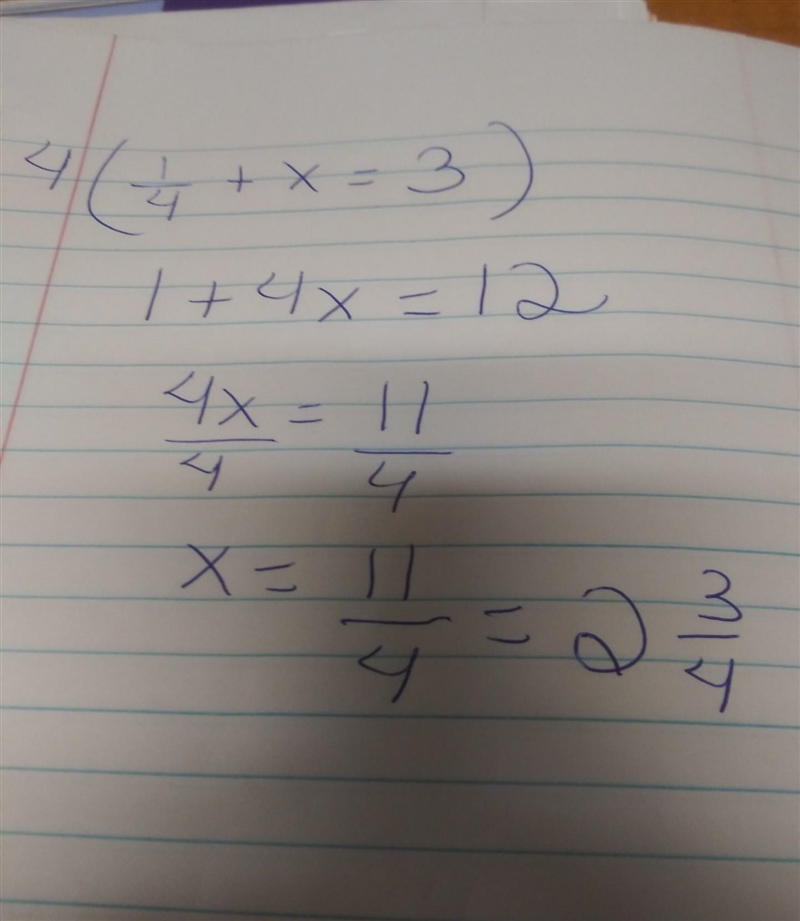 4(1/4 + x = 3)
1 + 4x = 12
4x/4 = 11/4
x = 11/4 = 2 3/4